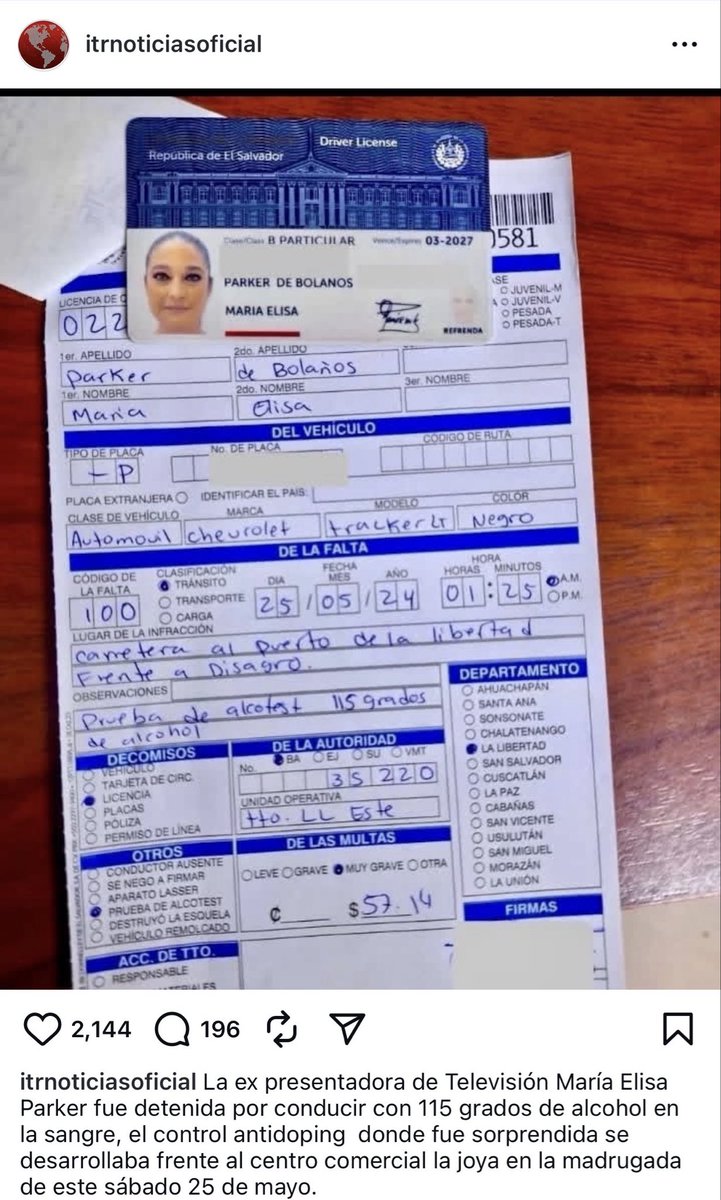 itrnoticiasoficial
Driver License
República de El Salvador
Clase/Class B PARTICULAR Vence/Expires 03-2027
PARKER DE BOLANOS
MARIA ELISA
REFRENDA
0581
LICENCIA DE C
022
ASE
JUVENIL-M
A JUVENIL-V
PESADA
PESADA-T
1er. APELLIDO 2do. APELLIDO
Parker de Bolaños
1er. NOMBRE 2do. NOMBRE 3er. NOMBRE
Maria Elisa
DEL VEHÍCULO
TIPO DE PLACA No. DE PLACA CÓDIGO DE RUTA
- P
PLACA EXTRANJERA IDENTIFICAR EL PAIS:
CLASE DE VEHÍCULO MARCA MODELO COLOR
Automovil chevrolet tracker LT Negro
DE LA FALTA
CÓDIGO DE LA FALTA
100
CLASIFICACIÓN
TRÁNSITO
TRANSPORTE
CARGA
FECHA
DIA MES AÑO
25/05/24
HORA
HORAS MINUTOS
01:25
A.M.
P.M.
LUGAR DE LA INFRACCIÓN
carretera al puerto de la libertad
Frente a Disagro.
OBSERVACIONES
Prueba de alcotest 115 grados
de alcohol
DECOMISOS
VEHÍCULO
TARJETA DE CIRC.
LICENCIA
PLACAS
PÓLIZA
PERMISO DE LÍNEA
OTROS
CONDUCTOR AUSENTE
SE NEGO A FIRMAR
APARATO LASSER
PRUEBA DE ALCOTEST
DESTRUYÓ LA ESQUELA
VEHÍCULO REMOLCADO
ACC. DE TTO.
RESPONSABLE
DE LA AUTORIDAD
BA EJ SU VMT
No.
35220
UNIDAD OPERATIVA
tto. LL Este
DE LAS MULTAS
LEVE GRAVE MUY GRAVE OTRA
₡ $57.14
DEPARTAMENTO
AHUACHAPÁN
SANTA ANA
SONSONATE
CHALATENANGO
LA LIBERTAD
SAN SALVADOR
CUSCATLÁN
LA PAZ
CABAÑAS
SAN VICENTE
USULUTÁN
SAN MIGUEL
MORAZÁN
LA UNIÓN
FIRMAS
2,144 196
itrnoticiasoficial La ex presentadora de Televisión María Elisa
Parker fue detenida por conducir con 115 grados de alcohol en
la sangre, el control antidoping donde fue sorprendida se
desarrollaba frente al centro comercial la joya en la madrugada
de este sábado 25 de mayo.